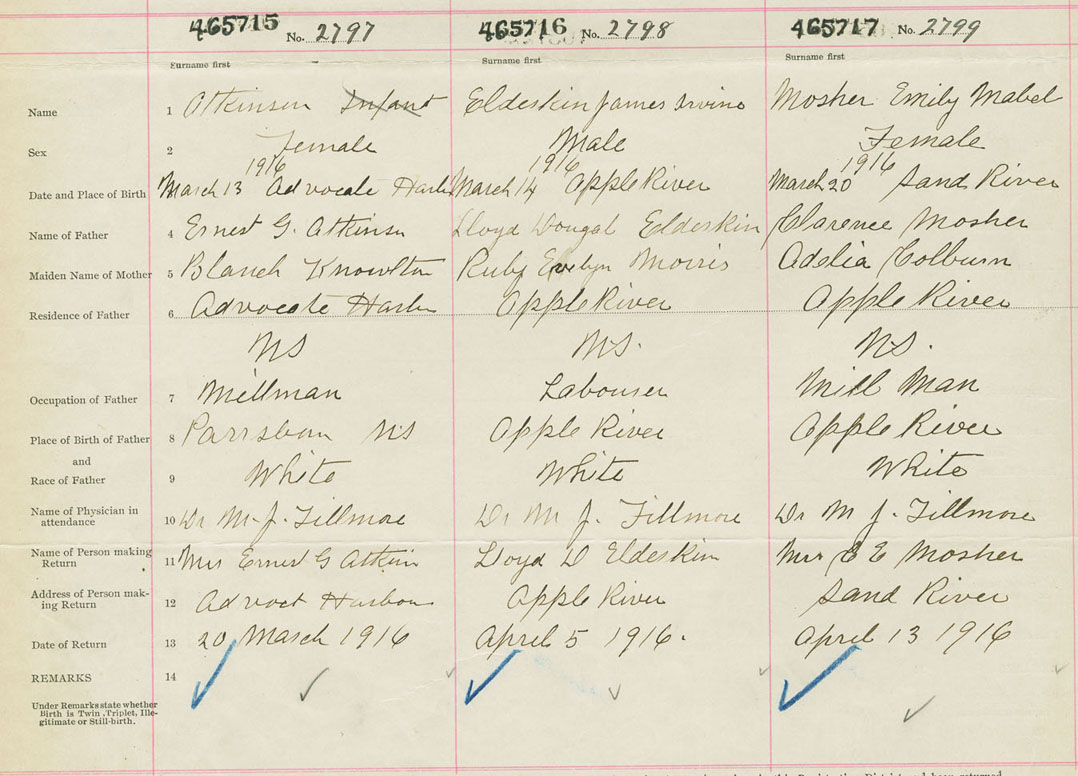 465715 No. 2797 465716 No. 2798 465717 No. 2799
Surname first Surname first Surname first
Name 1 Atkinson Infant Elderkin James Irvine Mosher Emily Mabel
Sex 2 Female Male Female
1916 1916 1916
Date and Place of Birth March 13 Advocate Harbr March 14 Apple River March 20 Sand River
Name of Father 4 Ernest G. Atkinson Lloyd Dougal Elderkin Clarence Mosher
Maiden Name of Mother 5 Blanch Knowlton Ruby Evelyn Morris Adelia Colburn
Residence of Father 6 Advocate Harbr Apple River Apple River
NS NS. NS.
Occupation of Father 7 Millman Labourer Mill Man
Place of Birth of Father 8 Parrsboro NS Apple River Apple River
and
Race of Father 9 White White White
Name of Physician in
attendance 10 Dr M. J. Fillmore Dr M J. Fillmore Dr M J. Fillmore
Name of Person making
Return 11 Mrs Ernest G Atkin Lloyd D Elderkin Mrs C E Mosher
Address of Person mak-
ing Return 12 Advoct Harbour Apple River Sand River
Date of Return 13 20 March 1916 April 5 1916. April 13 1916
REMARKS 14
Under Remarks state whether
Birth is Twin, Triplet, Ille-
gitimate or Still-birth.